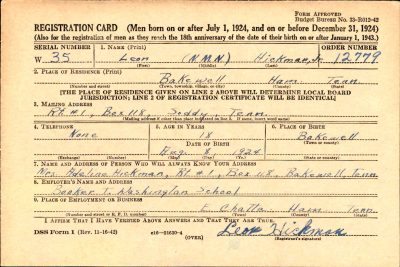 FORM APPROVED
Budget Bureau No. 33-R012-42
REGISTRATION CARD (Men born on or after July 1, 1924, and on or before December 31, 1924)
(Also for the registration of men as they reach the 18th anniversary of the date of their birth on or after January 1, 1943.)
SERIAL NUMBER 1. NAME (Print) ORDER NUMBER
W 35 Leon (N.M.N.) Hickman, Jr. 12779
(First) (Middle) (Last)
2. PLACE OF RESIDENCE (Print)
Bakewell Ham Tenn
(Number and street) (Town, township, village, or city) (County) (State)
[THE PLACE OF RESIDENCE GIVEN ON LINE 2 ABOVE WILL DETERMINE LOCAL BOARD
JURISDICTION; LINE 2 OF REGISTRATION CERTIFICATE WILL BE IDENTICAL]
3. MAILING ADDRESS
Rt #1, Box 118, Soddy, Tenn
(Mailing address if other than place indicated on line 2. If same, insert word same)
4. TELEPHONE 5. AGE IN YEARS 6. PLACE OF BIRTH
None 18 Bakewell
DATE OF BIRTH
8 1924 Tenn
(Exchange) (Number) (Mo.) (Day) (Yr.) (State or country)
7. NAME AND ADDRESS OF PERSON WHO WILL ALWAYS KNOW YOUR ADDRESS
Mrs. Adeline Hickman, Rt. #1, Box 118, Bakewell, Tenn
8. EMPLOYER'S NAME AND ADDRESS
Booker T. Washington School
9. PLACE OF EMPLOYMENT OR BUSINESS
E. Chatta Ham Tenn
(Number and street or R. F. D. number) (Town) (County) (State)
I AFFIRM THAT I HAVE VERIFIED ABOVE ANSWERS AND THAT THEY ARE TRUE.
DSS Form 1 (Rev. 11-16-42) (OVER) Leon Hickman
(Registrant's signature)